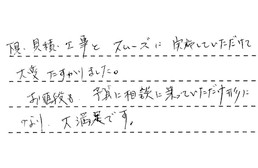 積・見積・工事と スムーズに 実施していただけて
大変 たすかりました。
お値段も 予算に相談に乗っていただけ 形に
なり、大満足です。